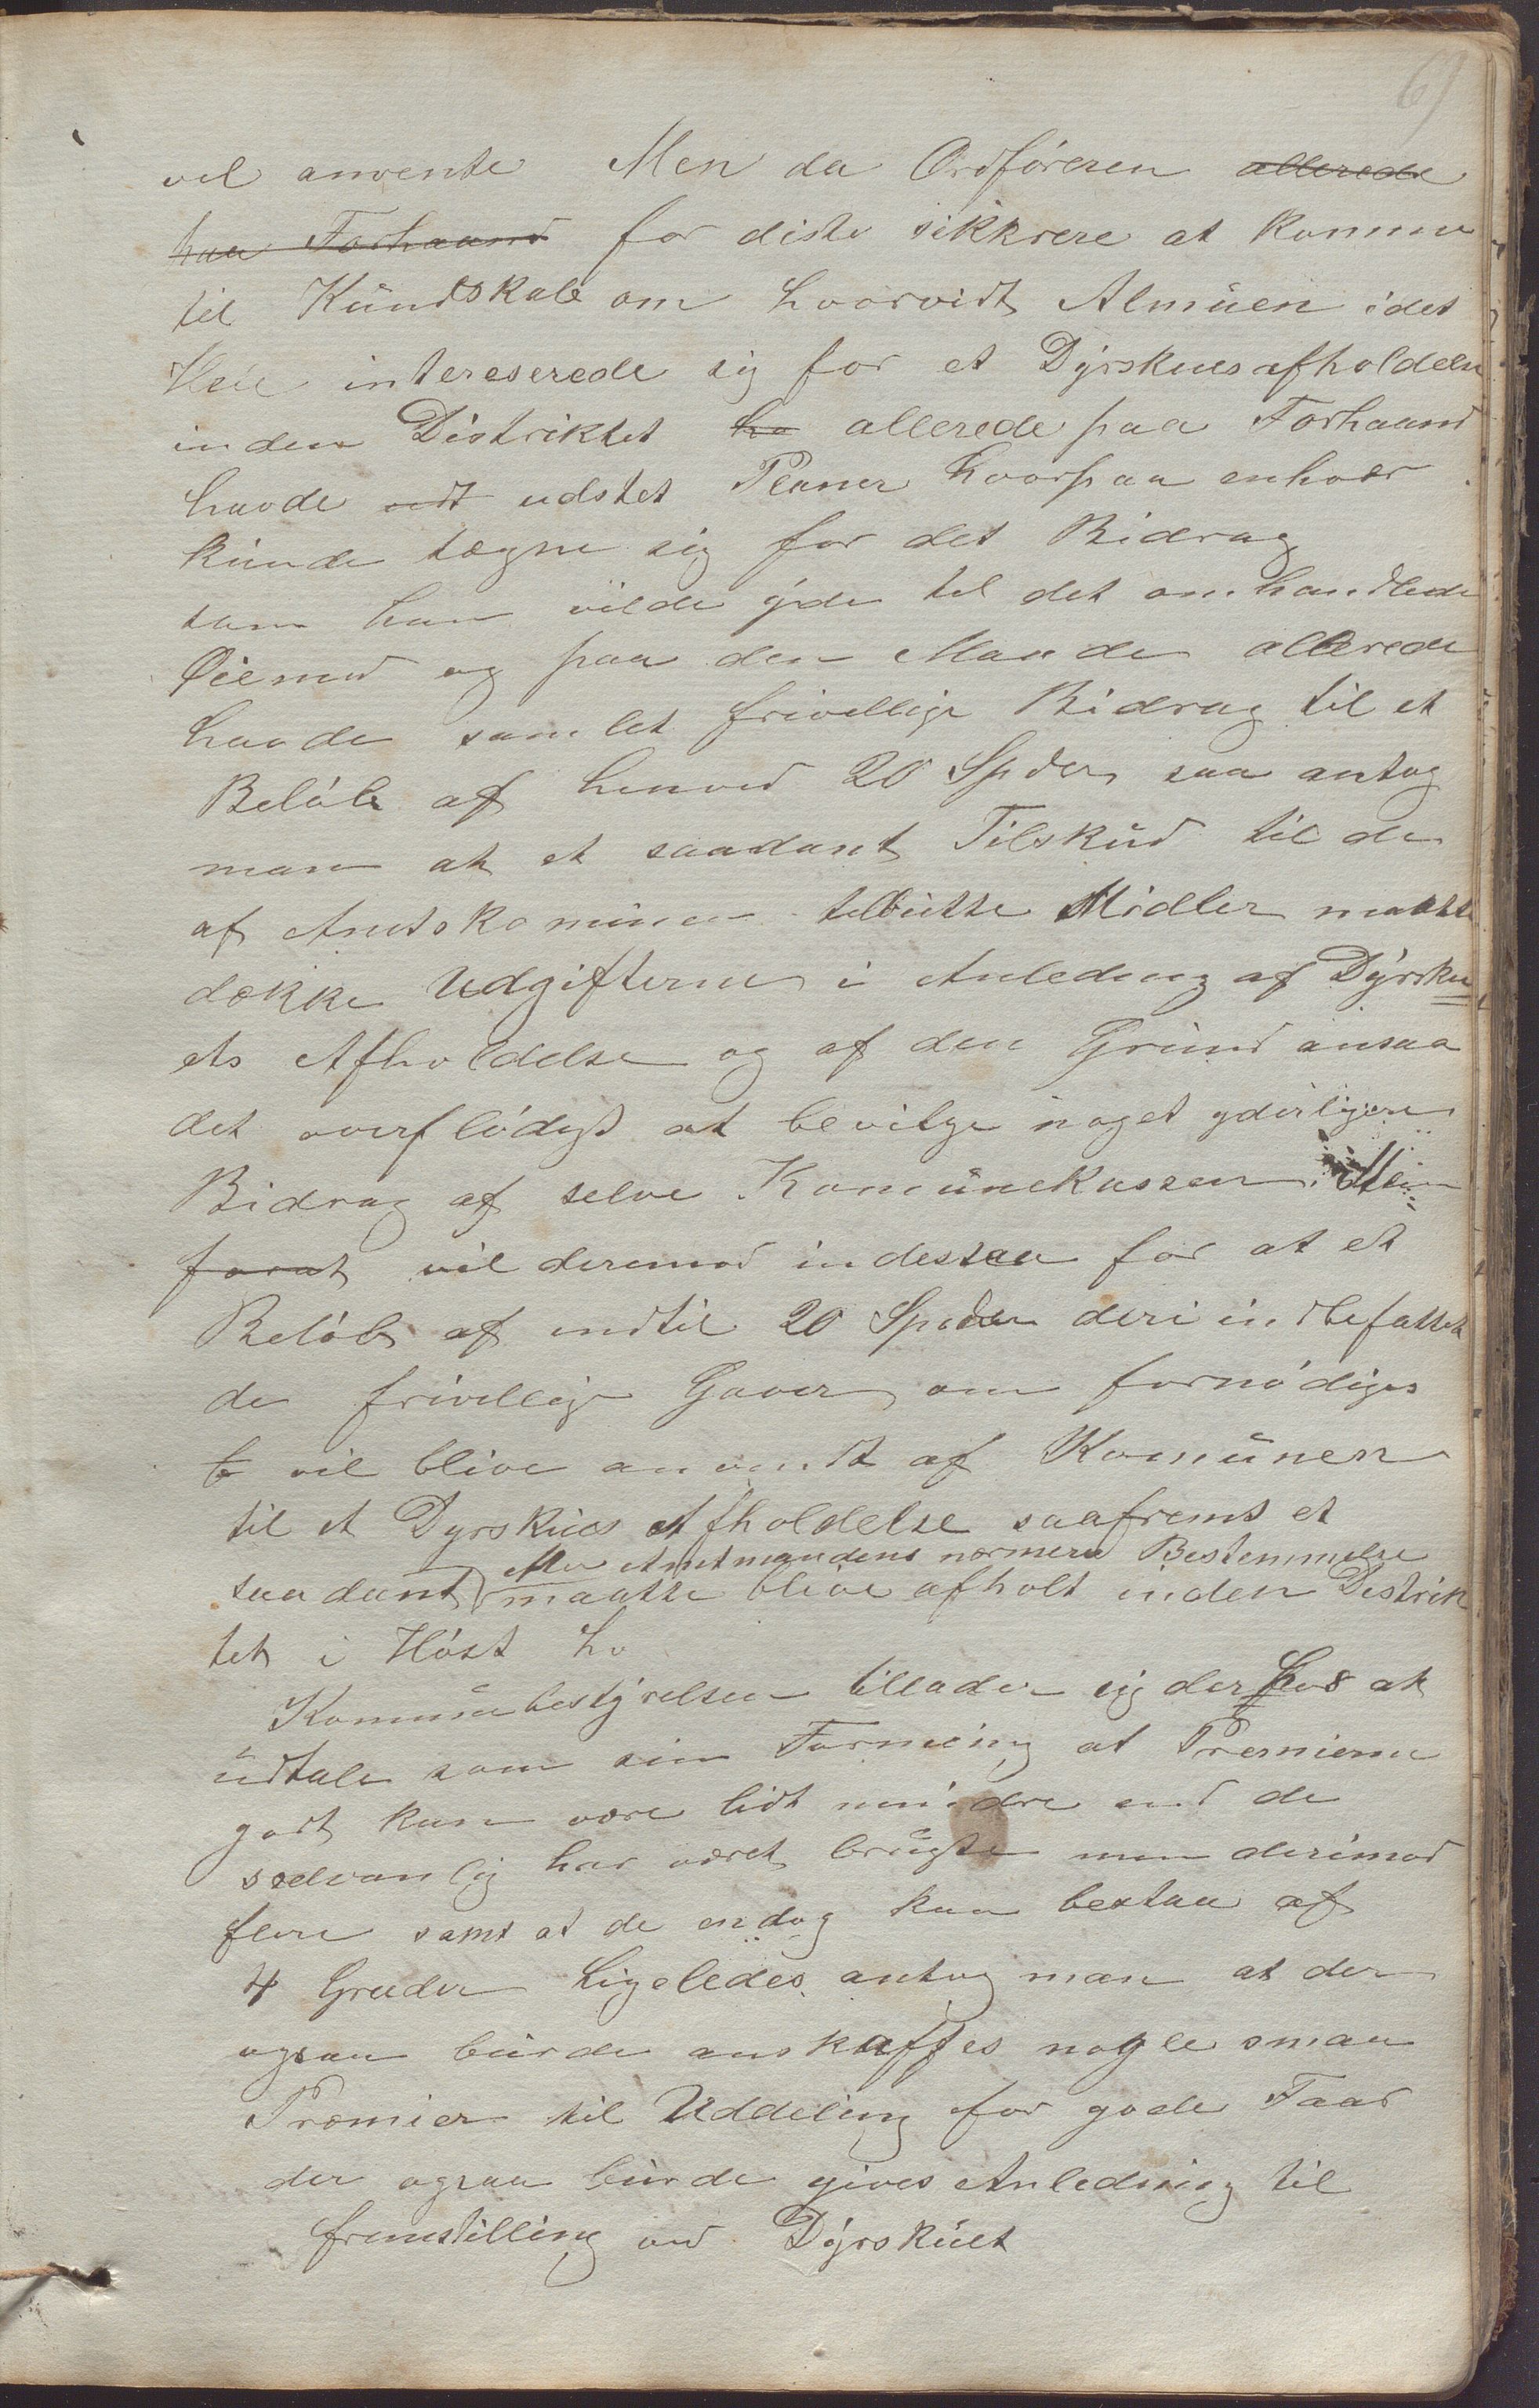 69
vel anvente Men da Ordføreren allerede
paa Forhaand for diste sikkrere at komme
til Kundskab om hvorvidt Almuen idet
Hele intereserede sig for et Dyrskues afholdelse
inden Distriktet ha allerede paa Forhaand
havde udt udstet Planer hvorpaa enhver
kunde tægne sig for det Bidrag
som han vilde yde til det omhandlede
Øiemed og paa den Maade allerede
havde samlet frivellige Bidrag til et
Beløb af henved 20 Spdlr saa antog
man at et saadant Tilskud til de
af Amtskomunen tilbutte Midler maatte
dække Udgifterne i Anledning af Dyrsku
ets Afholdelse og af den Grund ansaa
det overflødigt at bevilge noget yderligere
Bidrag af selve Komunekassen. Men
forat vil deremod indestaa for at et
Beløb af indtil 20 Spdlr deri indbefattet
de frivellige Gaver om fornødiges
b vil blive anvendt af Komunen
til et Dyrskues Afholdelse saafremt et
Me Amtmandens nærmere Bestemmelse
saadant maatte blive afholt inden Distrik
tet i Høst ho
Komunebestyrelsen tillader sig derhos at
udtale som sin Formening at Premierne
godt kan være lidt mindre end de
sedvanlig har været brugte men derimod
flere samt at de endog kan bestaa af
4 Grader Ligeledes antog man at der
ogsaa burde anskaffes nogle smaa
Præmier til Uddeling for gode Faar
der ogsaa burde gives Anledning til
fremstilling ved Dyrskuet